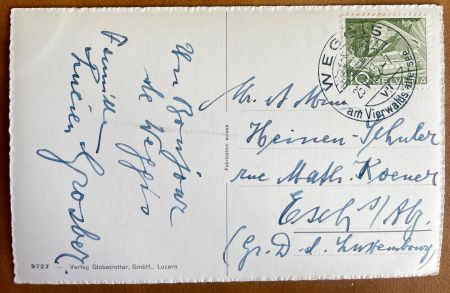 Un Bonjour
de Weggis
Famille
Lucien Grosber
9727 Verlag Globetrotter, GmbH., Luzern
Fabrication suisse
WEGGIS
am Vierwaldstättersee
10
HELVETIA
Mr. & Mme
Heinen-Schuler
rue Math. Koener
Esch s/Alz.
(Gr. D. d. Luxembourg)